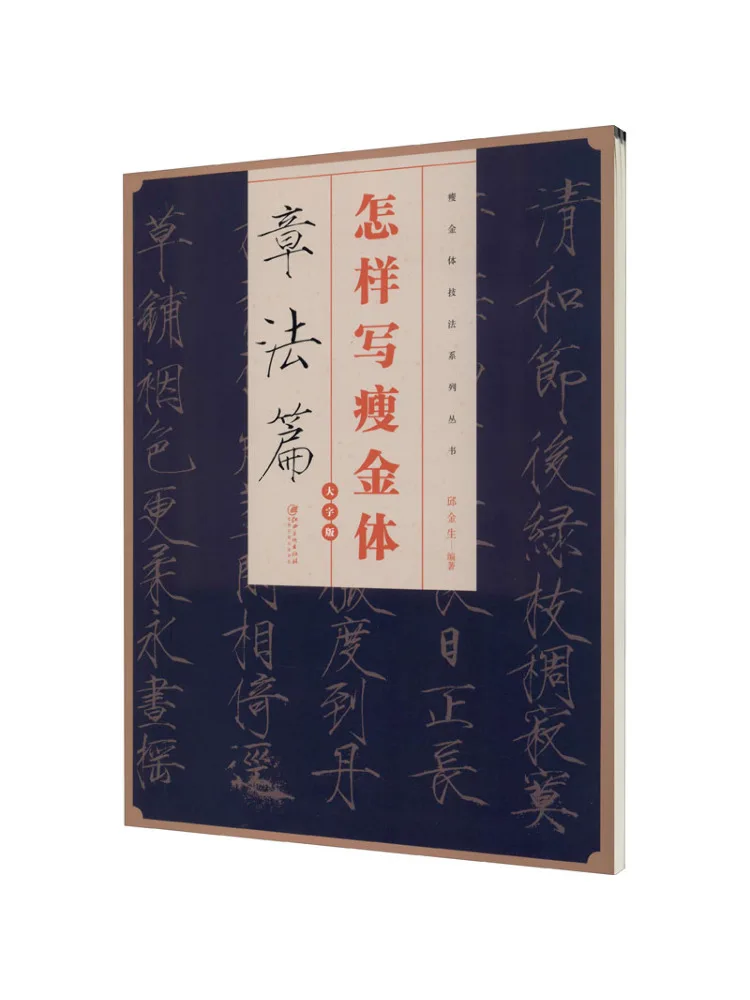 清和節後緑枝稠寂寞
日正長
度到丹
相倚
草鋪裀色更柔永晝搖
瘦金体技法系列丛书
邱金生—编著
怎样写瘦金体
大字版
章法篇
江西美术出版社